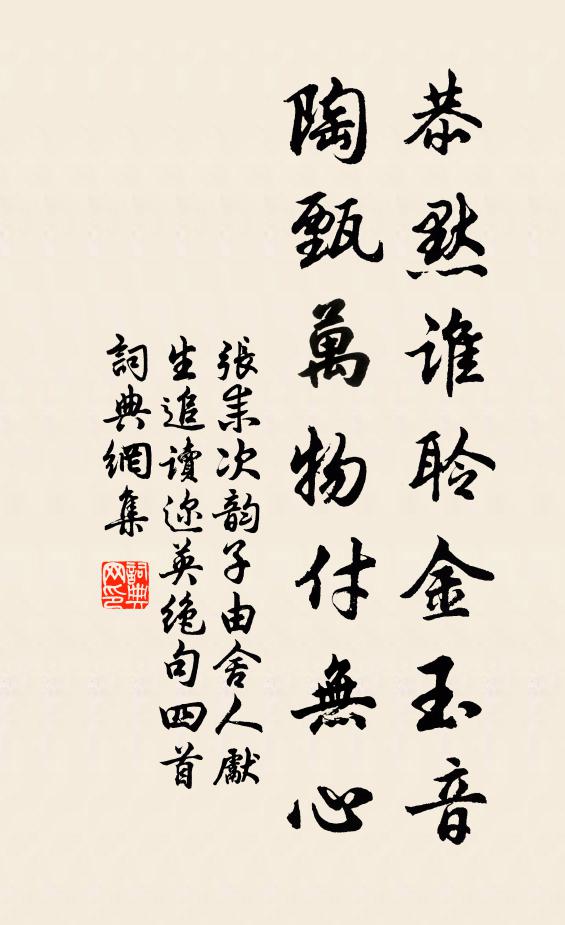 恭默誰聆金玉音
陶甄萬物付無心
張耒次韵子由舍人獻
生追讀迩英絶句四首
詞典網集
詞典网印